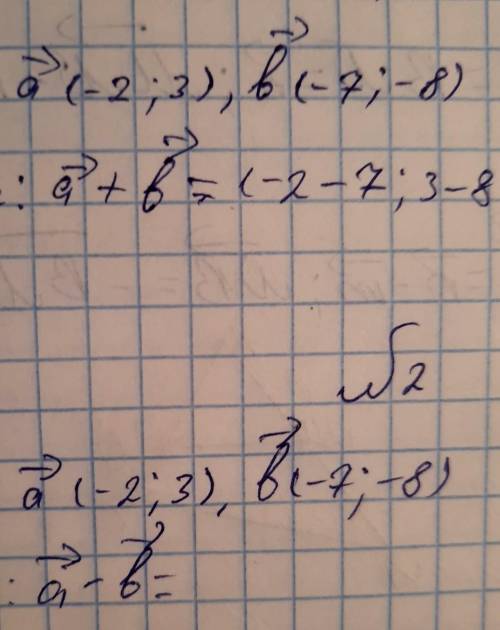 a⃗ (-2; 3), b⃗ (-7; -8)
: a⃗ + b⃗ = (-2 - 7; 3 - 8
№2
a⃗ (-2; 3), b⃗ (-7; -8)
: a⃗ - b⃗ =